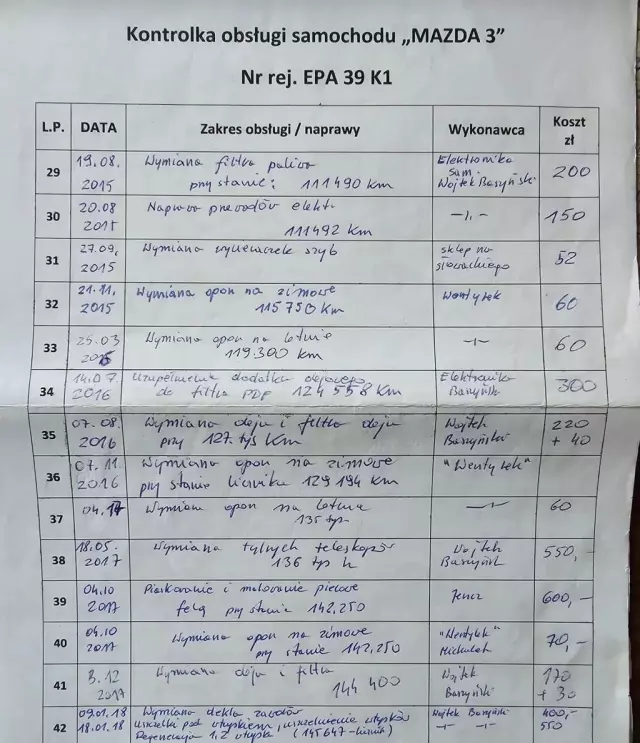 Kontrolka obsługi samochodu „MAZDA 3”
Nr rej. EPA 39 K1
L.P. DATA Zakres obsługi / naprawy Wykonawca Koszt zł
29 19.08. 2015 Wymiana filtra paliwa Elektronika Sam. Wojtek Barzyński 200
przy stanie: 111490 km
30 20.08 2015 Naprawa przewodów elekt. —„— 150
111492 km
31 27.09. 2015 Wymiana wycieraczek szyb sklep na Słowackiego 52
32 21.11. 2015 Wymiana opon na zimowe Wentylek 60
115750 km
33 25.03 2016 Wymiana opon na letnie —„— 60
119.300 km
34 14.07. 2016 Uzupełnienie dodatku olejowego Elektronika Barzyński 300
do filtra PDF 124558 km
35 07.08. 2016 Wymiana oleju i filtra oleju Wojtek Barzyński 220 + 40
przy 127. tyś km
36 07.11. 2016 Wymiana opon na zimowe "Wentylek"
przy stanie licznika 129194 km
37 04.17 Wymiana opon na letnie —„— 60
135 tyś
38 18.05. 2017 Wymiana tylnych teleskopów Wojtek Barzyński 550,-
136 tyś
39 04.10 2017 Piaskowanie i malowanie piecowe Jencz 600,-
felg przy stanie 142.250
40 04.10 2017 Wymiana opon na zimowe "Wentylek" 70,-
przy stanie 142,250
41 3.12 2017 Wymiana oleju i filtra Wojtek Barzyński 170 + 30
144 400
42 09.01.18 Wymiana dekla zaworów Wojtek Barzyński 400,-
18.01.18 uszczelki pod wtryskiem, uszczelnienie wtrysków —„— 550
Regeneracja 1,2 wtrysku (145647-licznik)